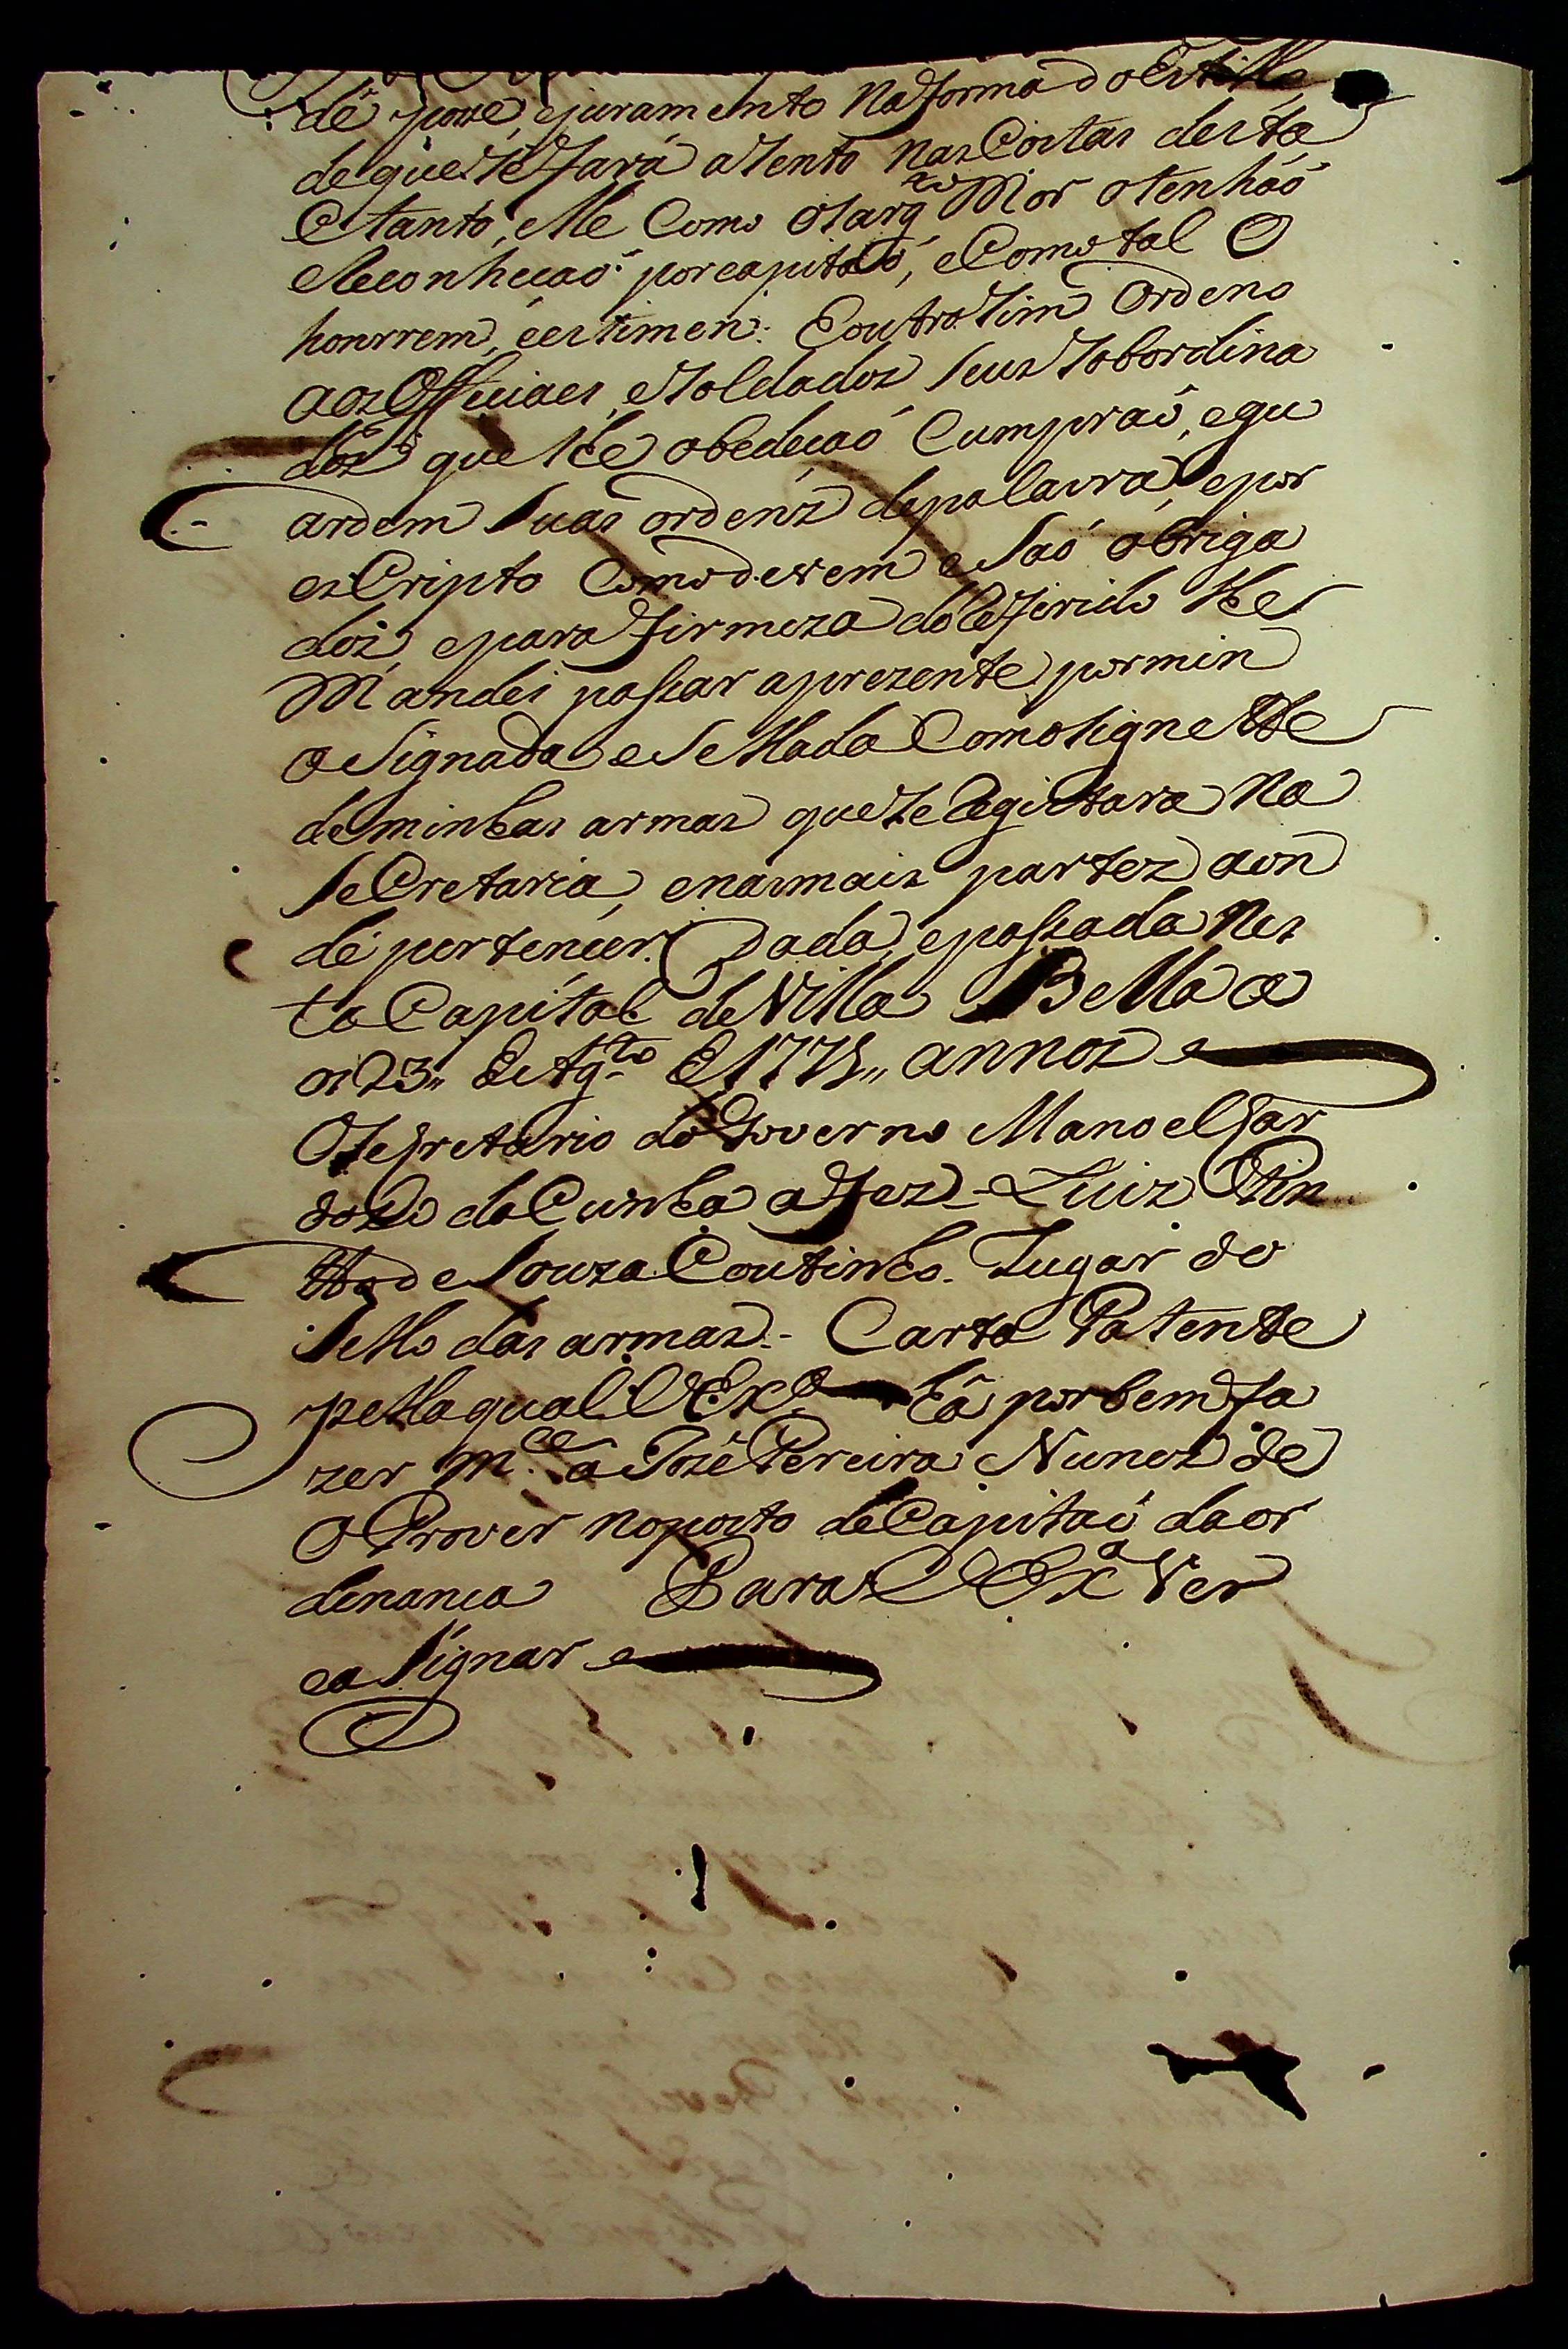 de posse, ejuramento na forma do Estillo
de que se fará asento nas Costas desta
E tanto, elle Como o Sarg.to Mor o tenhaó
eReconhecaó por capitaó, eComo tal O
honrrem, eestimem. Eoutro sim Ordeno
aos Officiaes, eSoldados seus sobordina
dos que lhe obedecaó Cumpraó, egu
ardem suas ordens depalavra, epor
esCripto Como devem e saó obriga
dos, epara firmeza do Referido lhe
Mandei passar aprezente por min
aSignada eSellada Com oSignette
deminhas armas que se Registara na
seCretaria, enasmais partes aon
de pertencer. Dada, epassada nes
ta Capital de Villa Bella a
os 23,, de Ag.to de 1771,, annos
OSecretario do Governo Manoel Car
dozo da Cunha afez - Luiz Pin
to de Souza Coutinho. Lugar do
Sello das armas. - Carta Patente
pella qual V. Ex.a há por bem fa
zer m.ce a Jozé Pereira Nunes de
o Prover noposto de Capitaó da or
denanca Para V Ex.a Ver
easignar